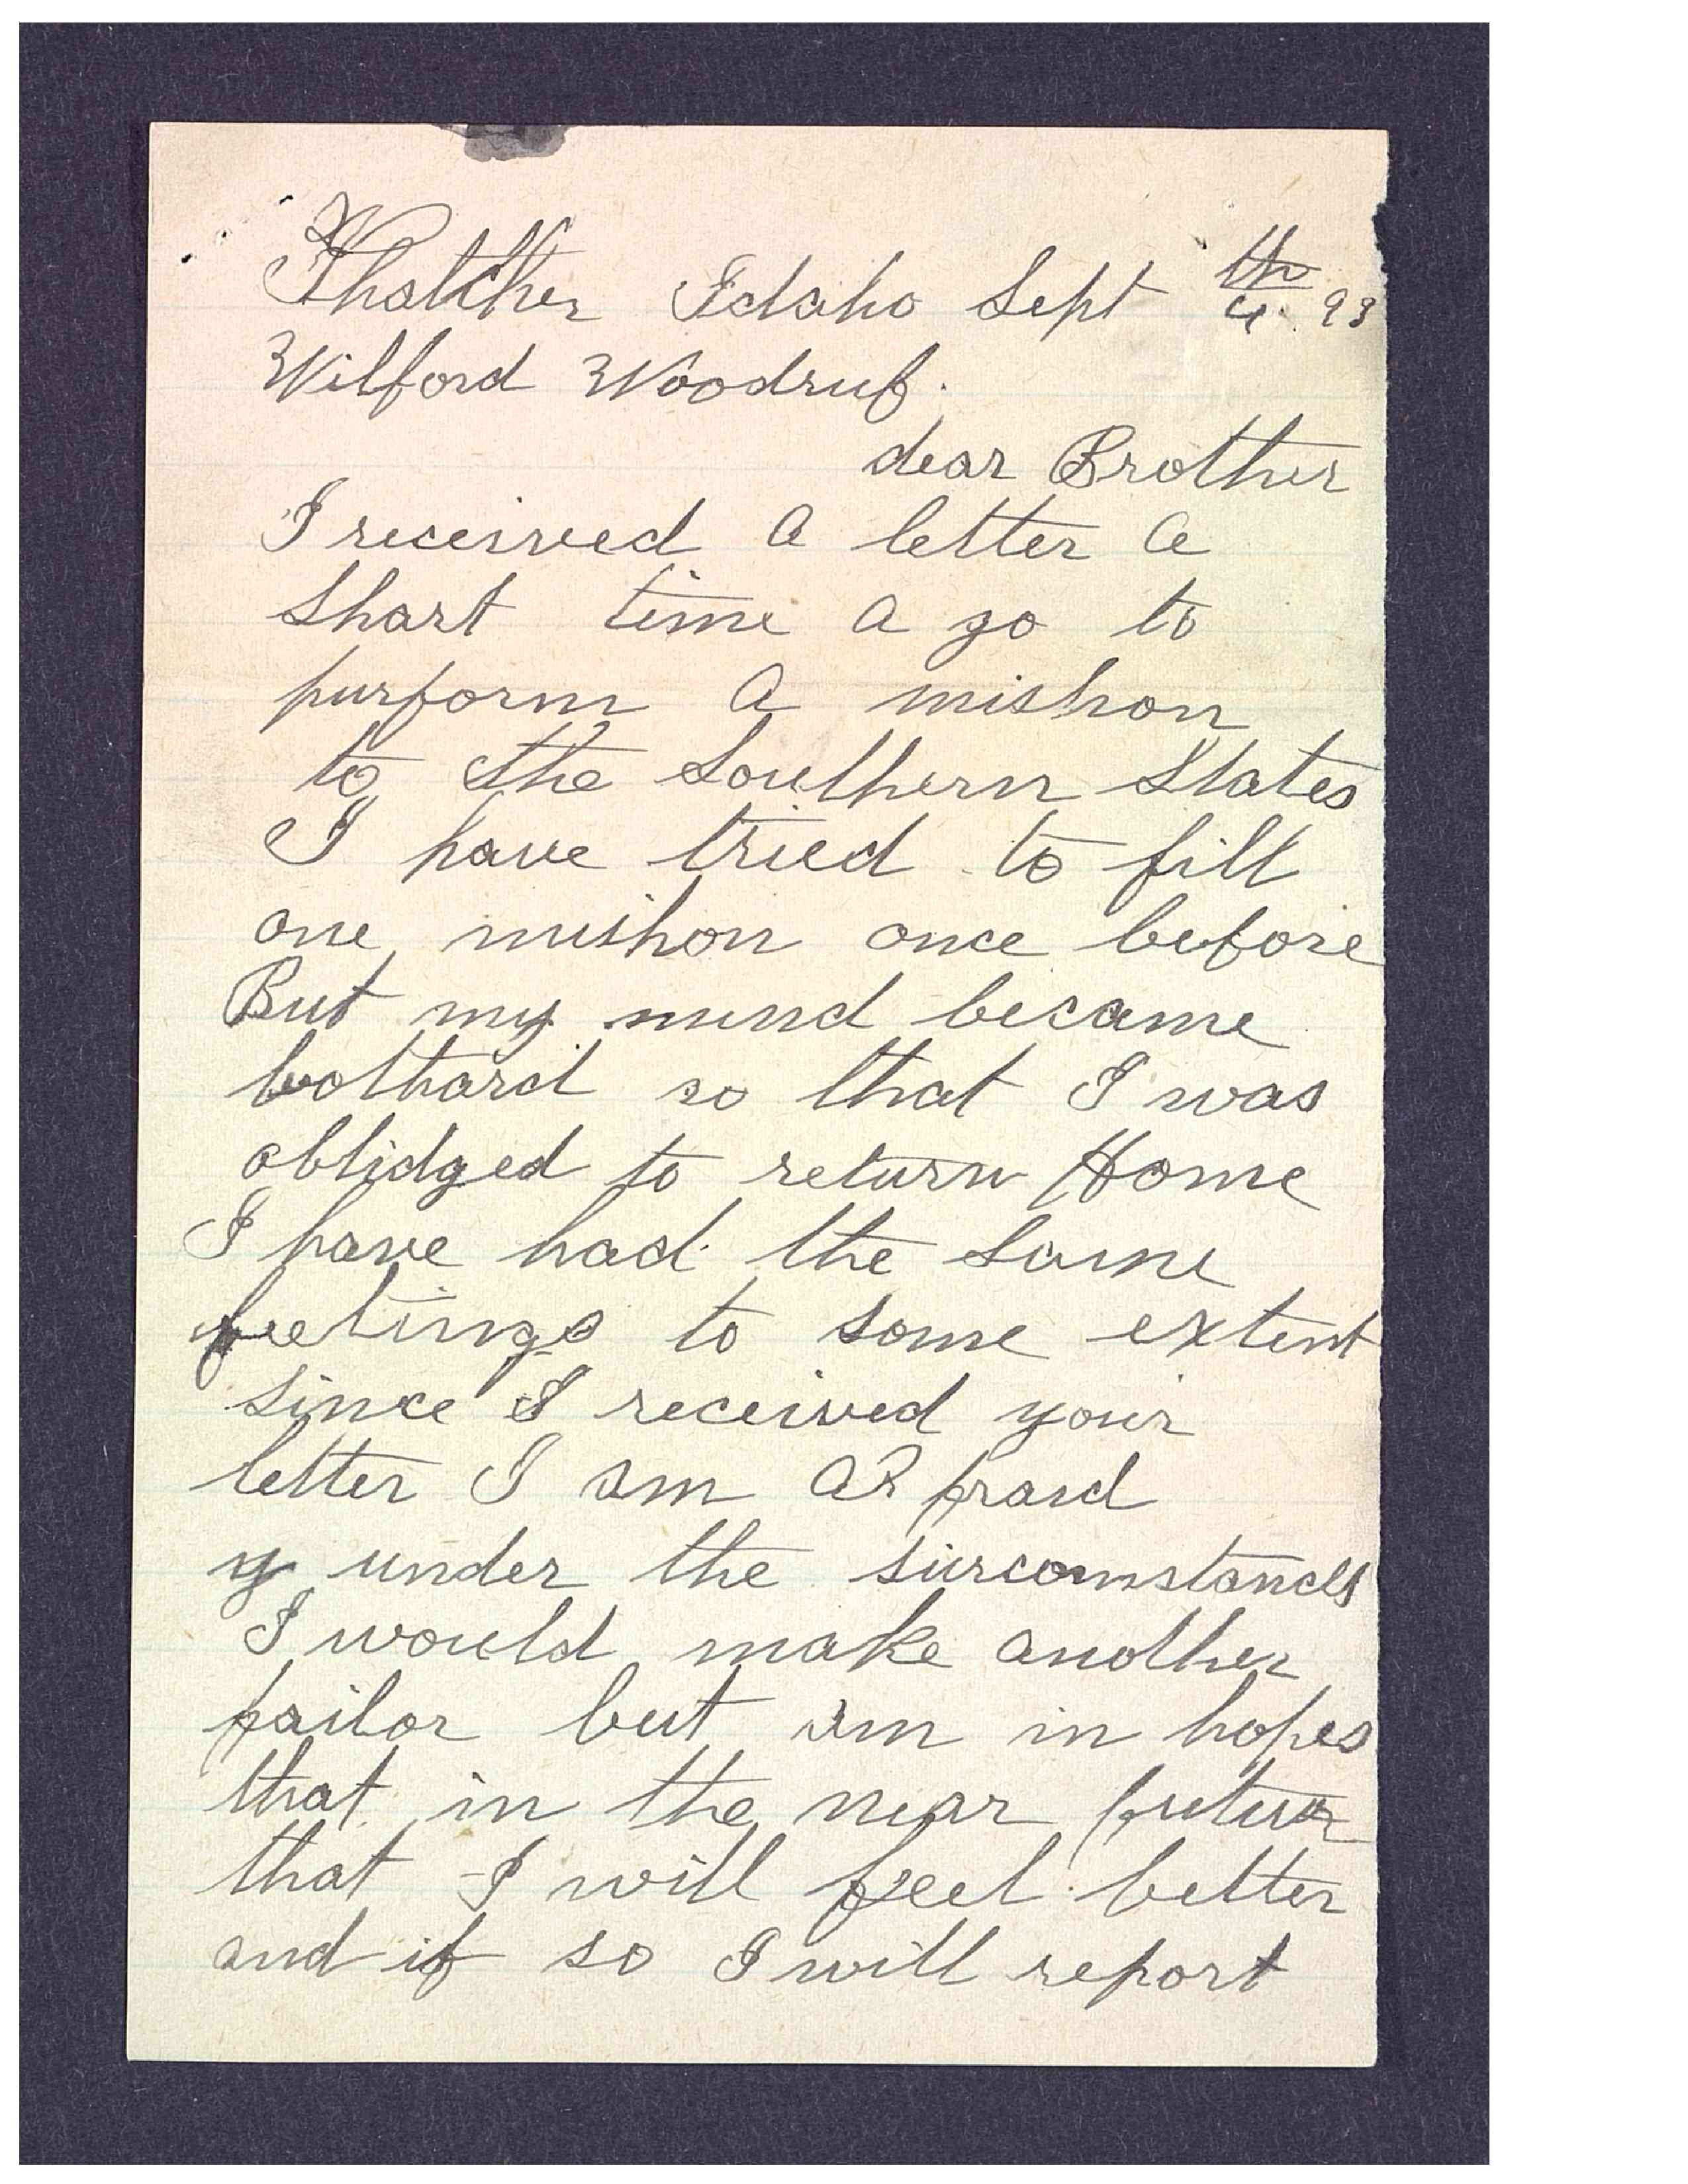 Thatcher Idaho Sept 4th 93
Wilford Woodruf.
dear Brother
I received a letter a
short time a go to
purform a mishon
to the Southern States
I have tried to fill
one mishon once before
But my mind became
bothard so that I was
oblidged to return Home
I have had the same
feelings to some extent
since I received your
letter I am af fraid
if under the surcomstances
I would make another
failor but am in hopes
that in the near futur
that I will feel better
and if so I will report